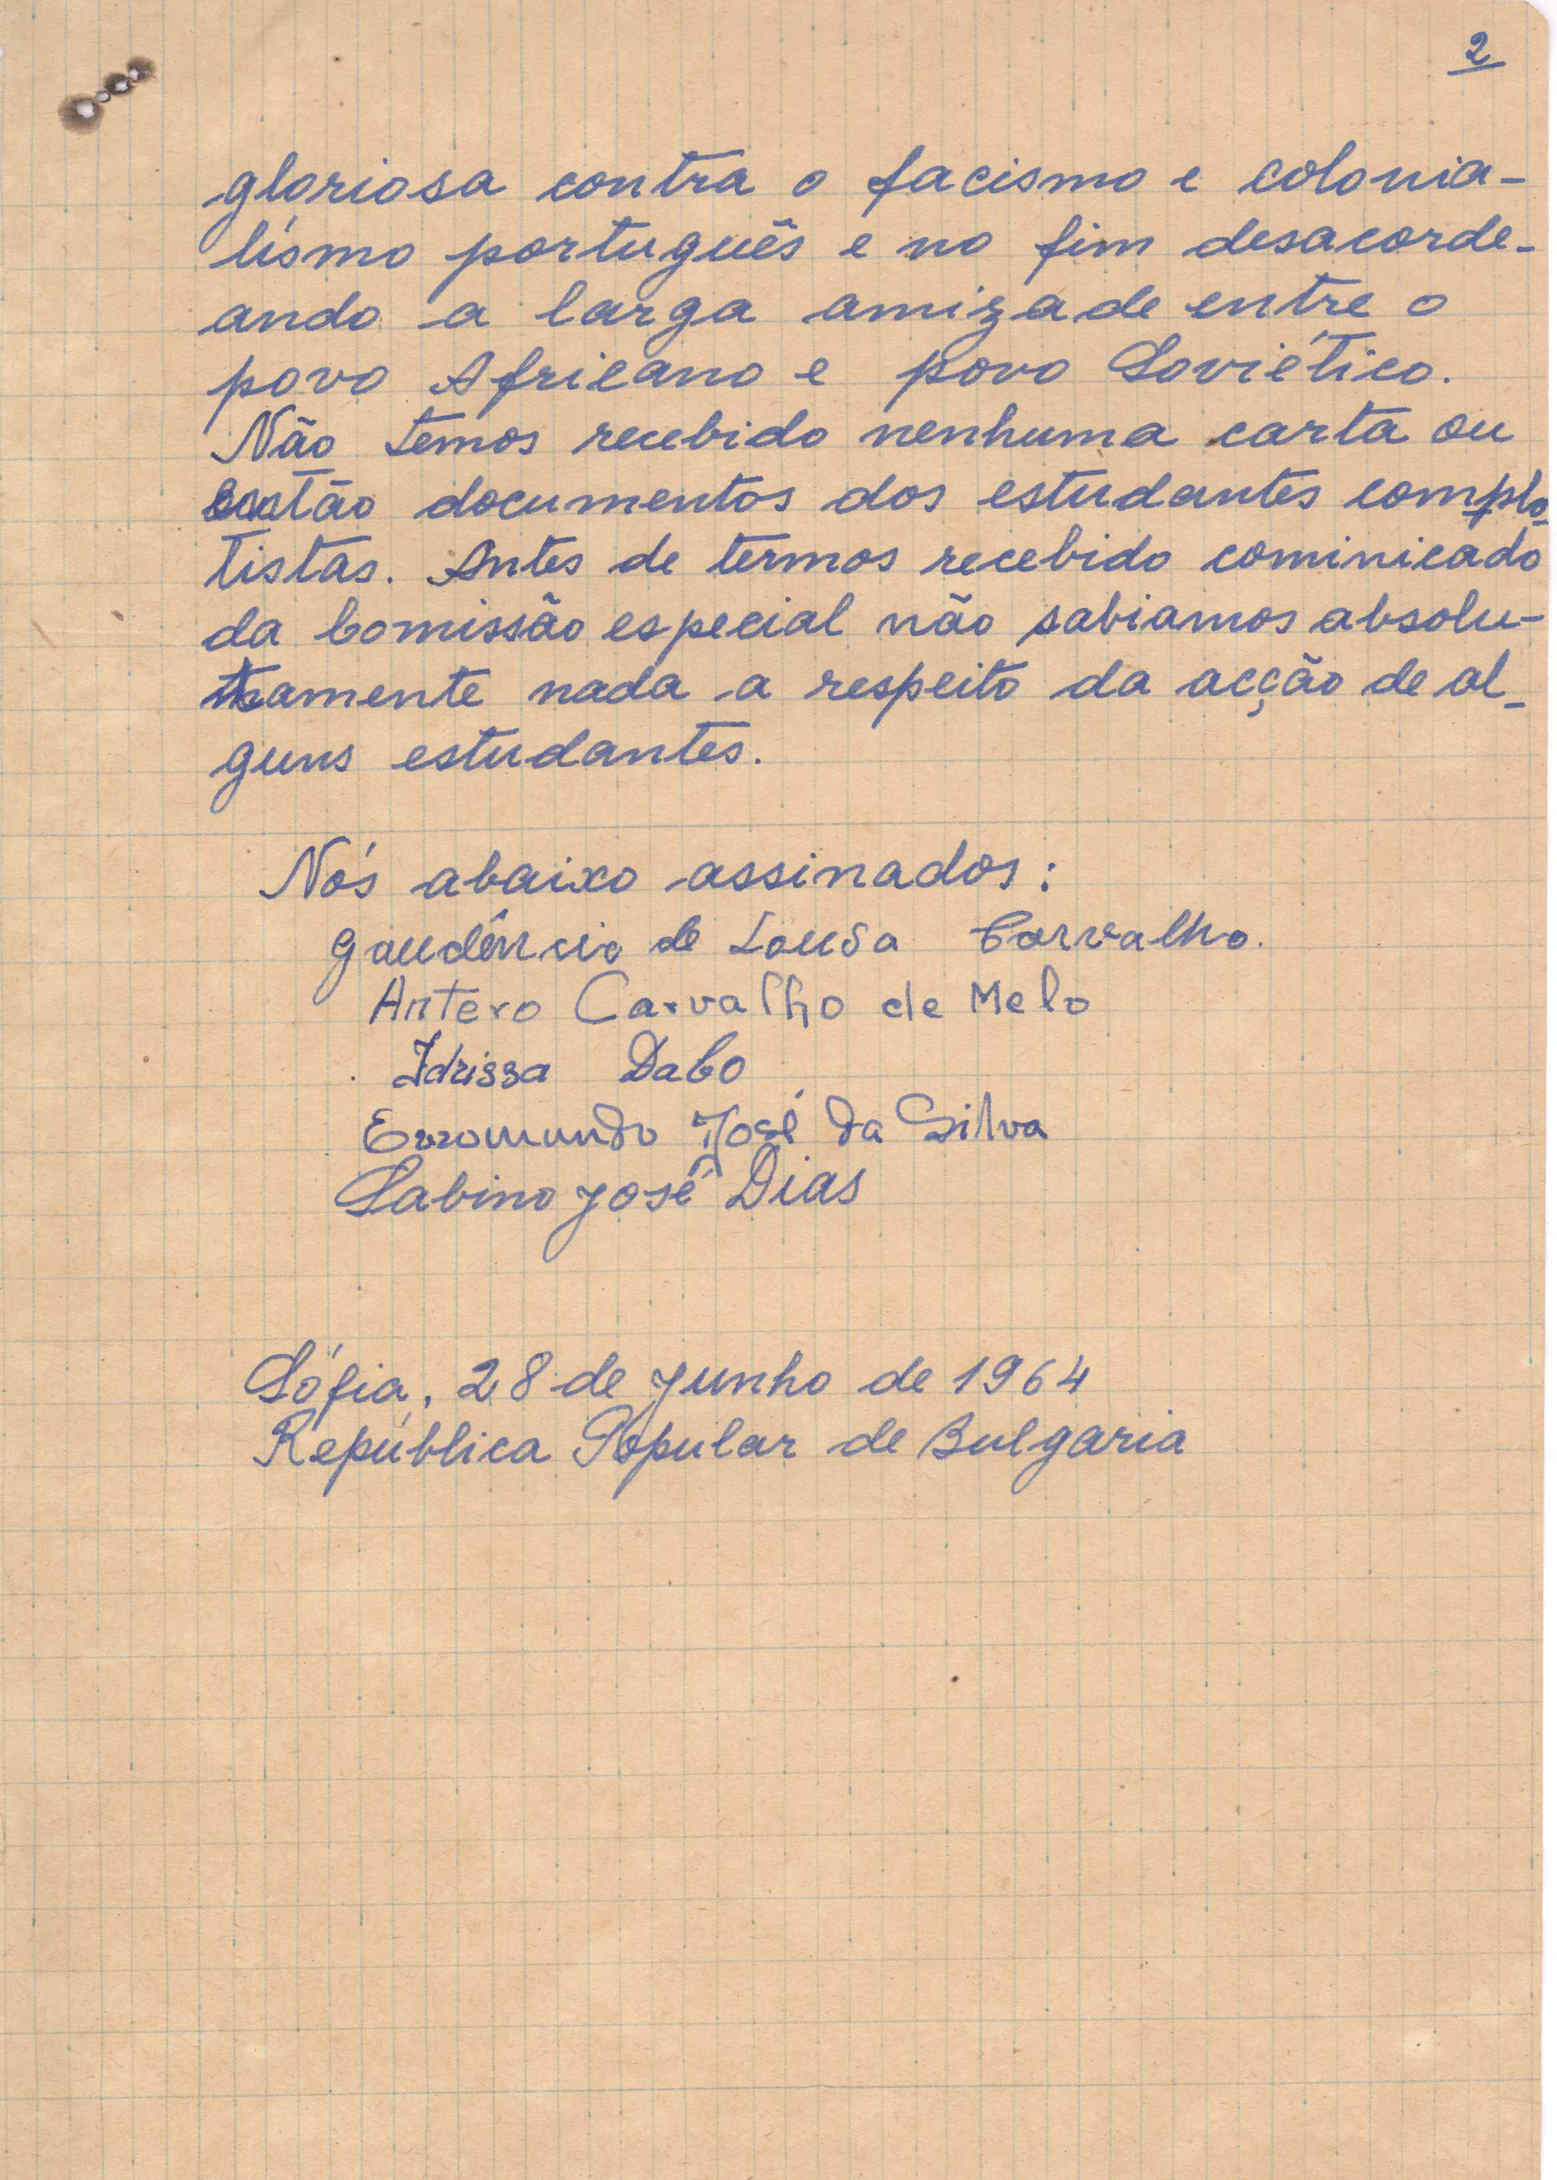 2
gloriosa contra o facismo e colonia-
lísmo português e no fim desacorde-
ando a larga amizade entre o
povo Africano e povo Soviético.
Não temos recebido nenhuma carta ou
então documentos dos estudantes complo-
tistas. Antes de termos recebido cominicado
da Comissão especial não sabiamos absolu-
tamente nada a respeito da acção de al-
guns estudantes.
Nós abaixo assinados:
Gaudêncio de Lousa Carvalho.
Antero Carvalho de Melo
Idrissa Dabo
José da Silva
Sabino José Dias
Sófia, 28 de Junho de 1964
República Popular de Bulgaria